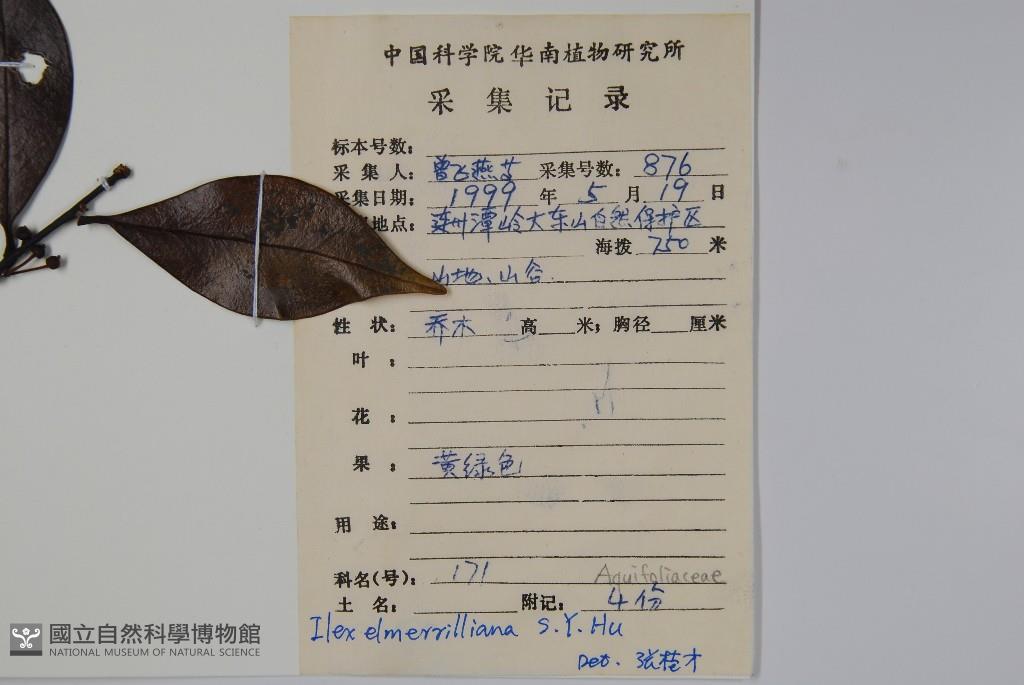 中国科学院华南植物研究所
采集记录
标本号数:
采集人: 曾飞燕等 采集号数: 876
采集日期: 1999 年 5 月 19 日
地点: 连州潭岭大东山自然保护区
海拨 750 米
山地、山谷.
性状: 乔木 高 米; 胸径 厘米
叶:
花:
果: 黄绿色
用途:
科名(号): 171 Aquifoliaceae
土名: 附记: 4份
Ilex elmerrilliana S.Y. Hu
Det. 张桂才
國立自然科學博物館
NATIONAL MUSEUM OF NATURAL SCIENCE